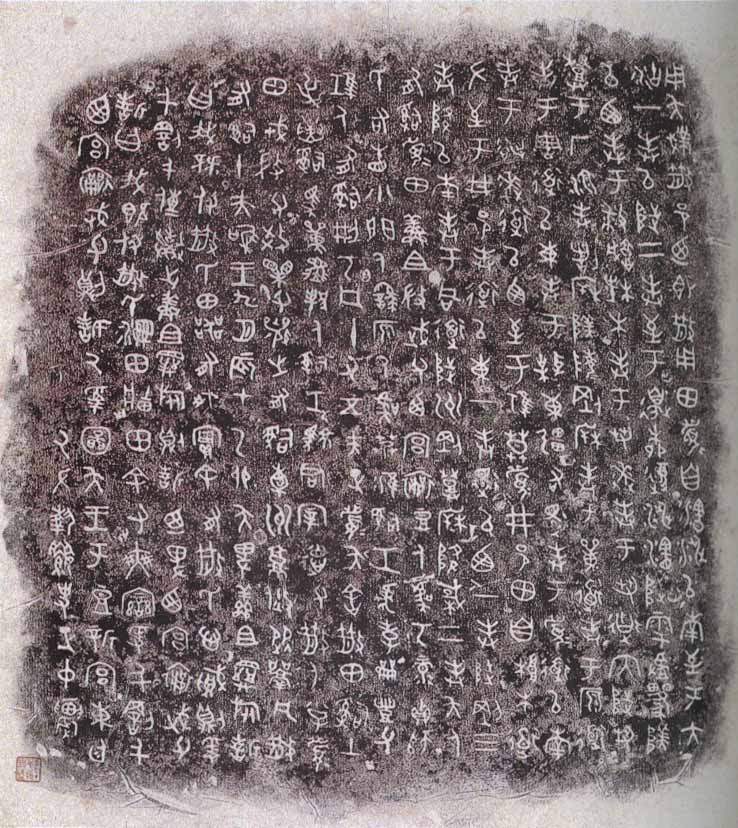 用夨散邑廼即散用田眉自瀗涉以南至于大
沽一封以陟二封至于邊柳復涉瀗陟雩
以西封于城楮木封于芻逨封于芻道內陟芻
登于厂湶封陵剛封于道封于原道
封于周道以東封于東疆右還封于眉道以南
封于逨道以西至于莫眉井邑田自根木道
左至于井邑封道以東一封還以西一封陟剛三
封降以南封于同道陟州剛登降棫二封夨人
有司眉田鮮且微武父西宮襄豆人虞丂彔貞師
氏右眚小門人繇原人虞艿淮司工虎孝豐父
人有司刑丂凡十又五夫正眉夨舍散田司土
寅司馬單人司工君宰德父散人小子眉
田戎微父效父襄之有司橐州從凡散
有司十夫唯王九月辰才乙卯夨卑鮮且旅誓
曰我既付散氏田器有爽實余有散氏心賊則爰
千罰千傳棄之鮮且旅則誓廼卑西宮襄武父
誓曰我既付散氏溼田牆田余又爽爰千罰千
西宮襄武父則誓厥受圖夨王于豆新宮東廷
厥左執史正中農